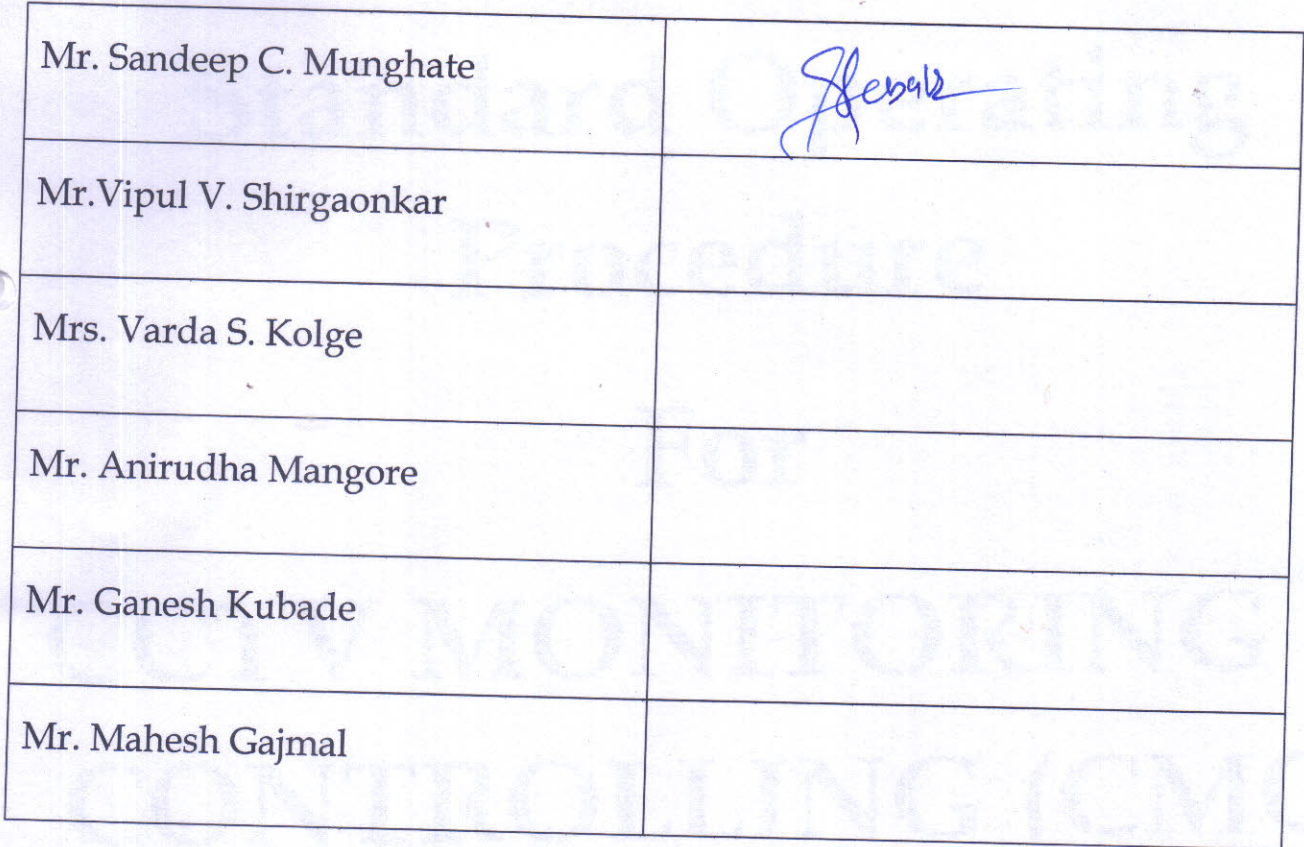 Mr. Sandeep C. Munghate
Mr.Vipul V. Shirgaonkar
Mrs. Varda S. Kolge
Mr. Anirudha Mangore
Mr. Ganesh Kubade
Mr. Mahesh Gajmal